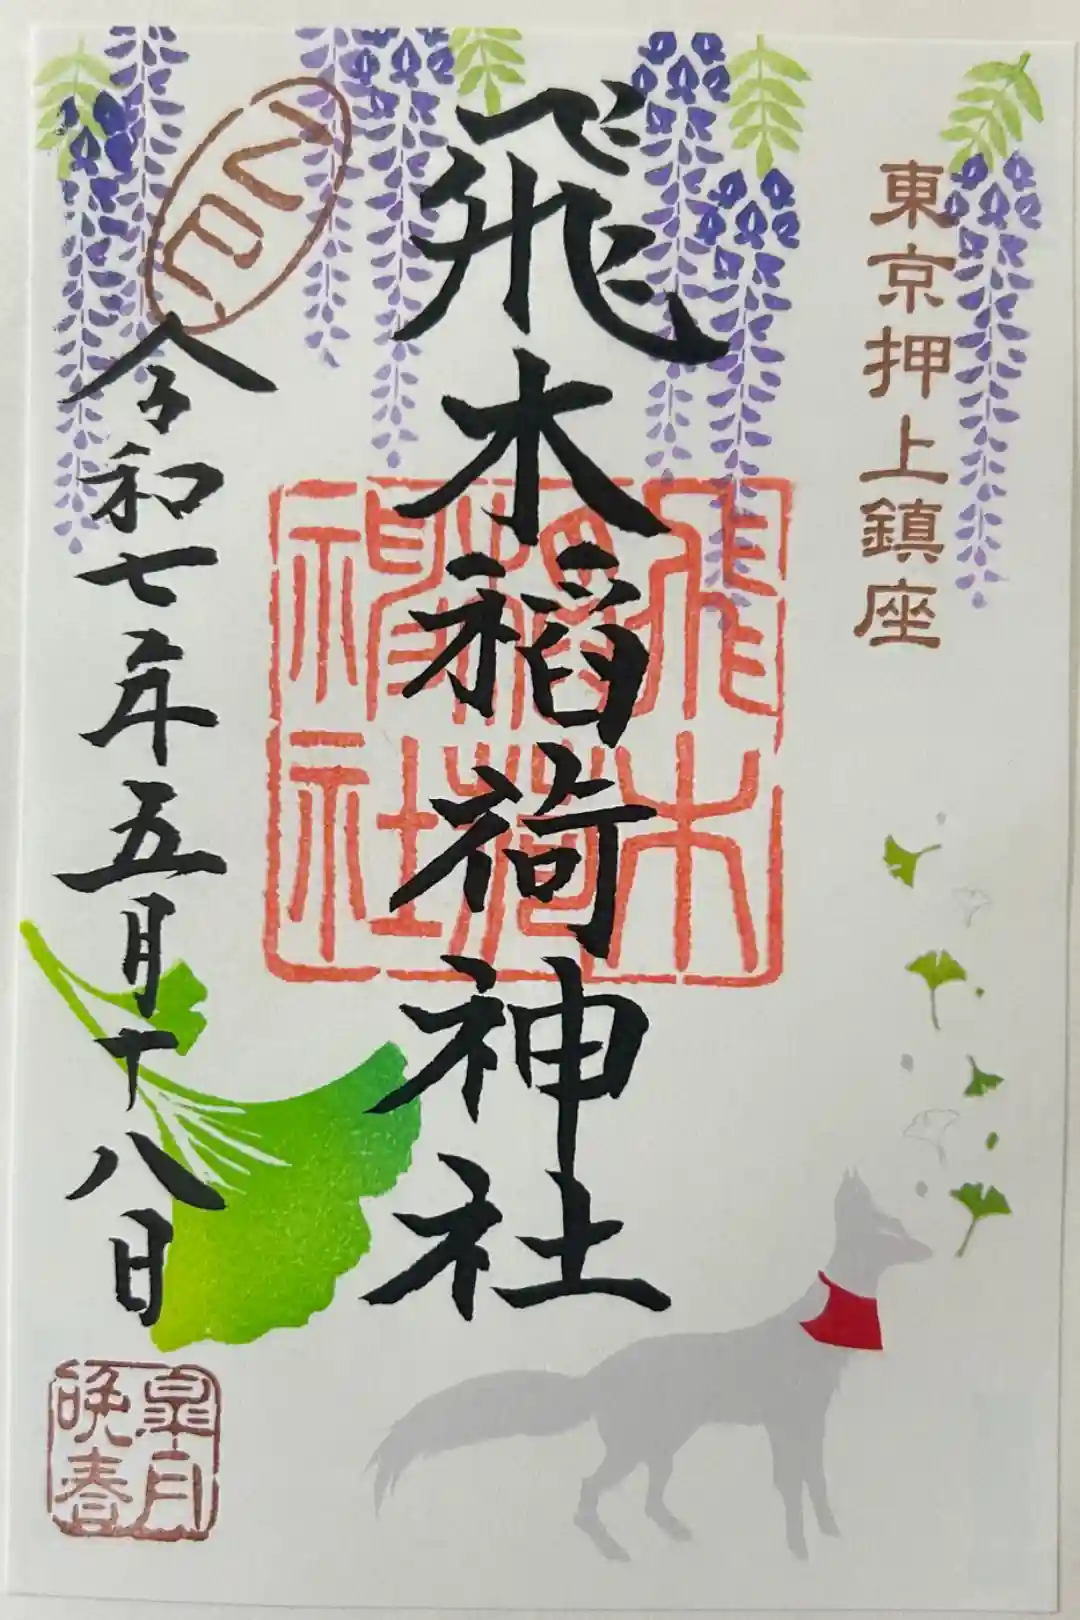 東京押上鎮座
飛木稲荷神社
飛木
稲荷
神社
乙巳
令和七年五月十八日
皐月
晩春